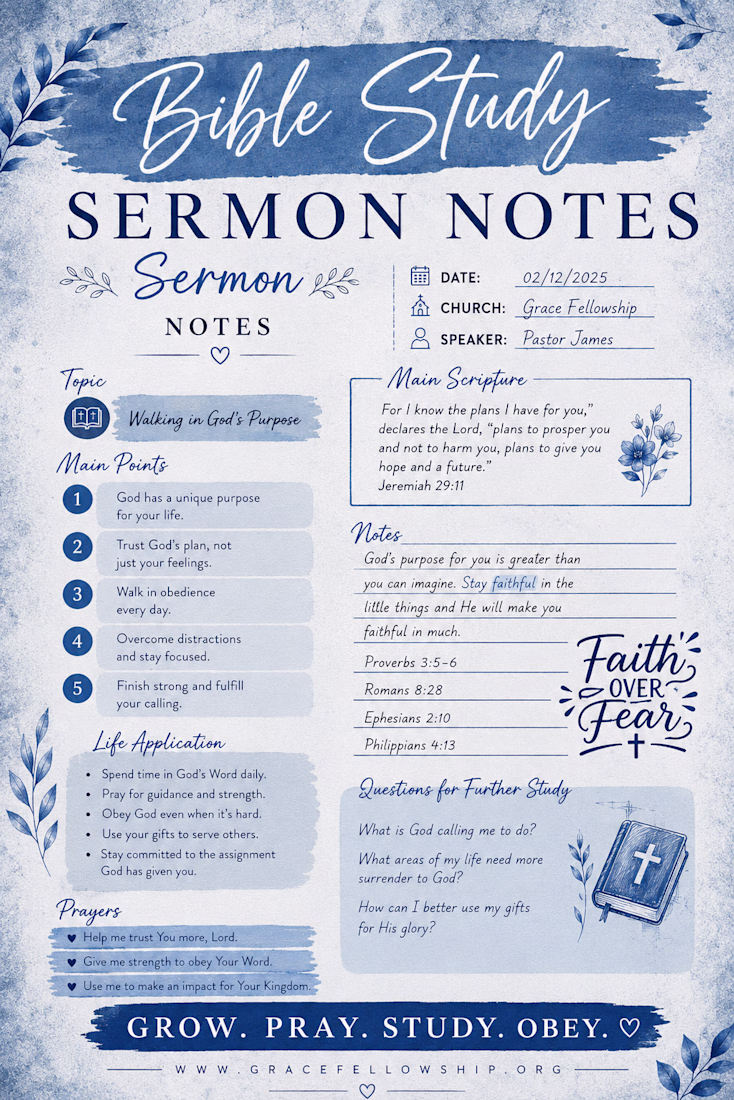 Bible Study
SERMON NOTES
Sermon
NOTES
DATE: 02/12/2025
CHURCH: Grace Fellowship
SPEAKER: Pastor James
Topic
Walking in God's Purpose
Main Points
1 God has a unique purpose
for your life.
2 Trust God's plan, not
just your feelings.
3 Walk in obedience
every day.
4 Overcome distractions
and stay focused.
5 Finish strong and fulfill
your calling.
Life Application
• Spend time in God's Word daily.
• Pray for guidance and strength.
• Obey God even when it's hard.
• Use your gifts to serve others.
• Stay committed to the assignment
God has given you.
Prayers
Help me trust You more, Lord.
Give me strength to obey Your Word.
Use me to make an impact for Your Kingdom.
Main Scripture
For I know the plans I have for you,”
declares the Lord, “plans to prosper you
and not to harm you, plans to give you
hope and a future.”
Jeremiah 29:11
Notes
God's purpose for you is greater than
you can imagine. Stay faithful in the
little things and He will make you
faithful in much.
Proverbs 3:5-6
Romans 8:28
Ephesians 2:10
Philippians 4:13
Faith
OVER
Fear
Questions for Further Study
What is God calling me to do?
What areas of my life need more
surrender to God?
How can I better use my gifts
for His glory?
GROW. PRAY. STUDY. OBEY.
WWW.GRACEFELLOWSHIP.ORG